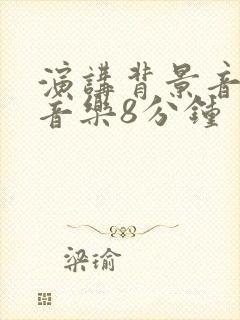 演講背景音
音樂8分鍾
梁瑜